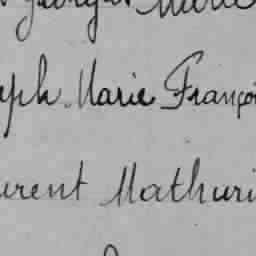 Georges Marie
eph Marie Françoi
urent Mathuri